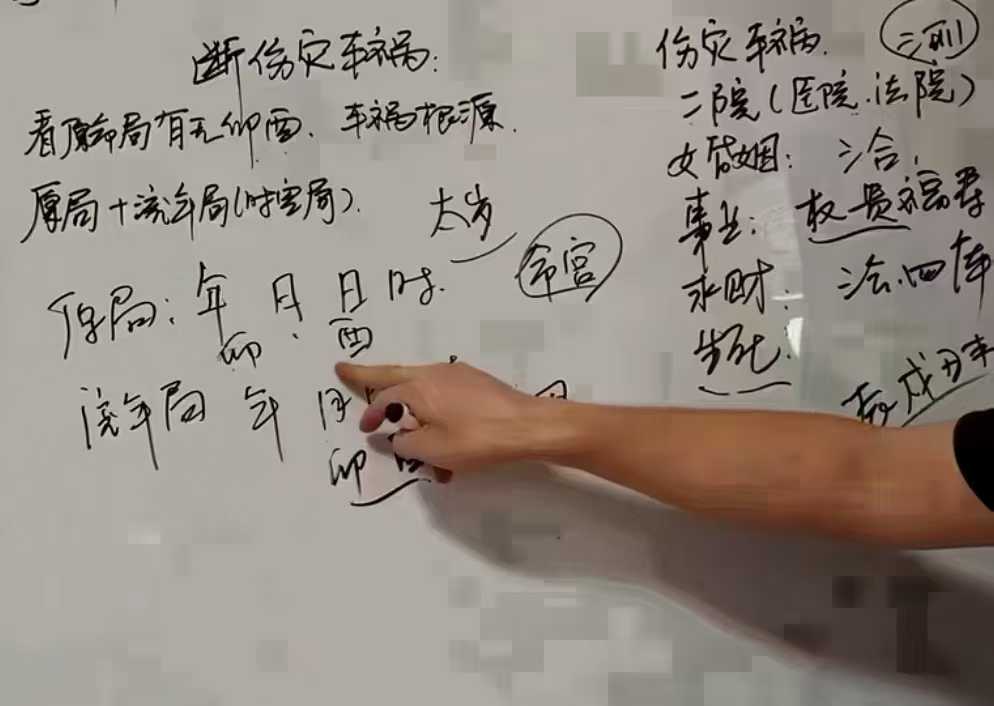 断伤灾车祸:
看原命局有无卯酉. 车祸根源.
原局+流年局(时空局).
太岁
命宫
原局: 年 月. 日 时.
卯 酉
流年局 年 月
卯
伤灾车祸. 三刑
二院(医院.法院)
女婚姻: 三合.
事业: 权贵福寿
求财: 三合.四库
生死.
辰戌丑未